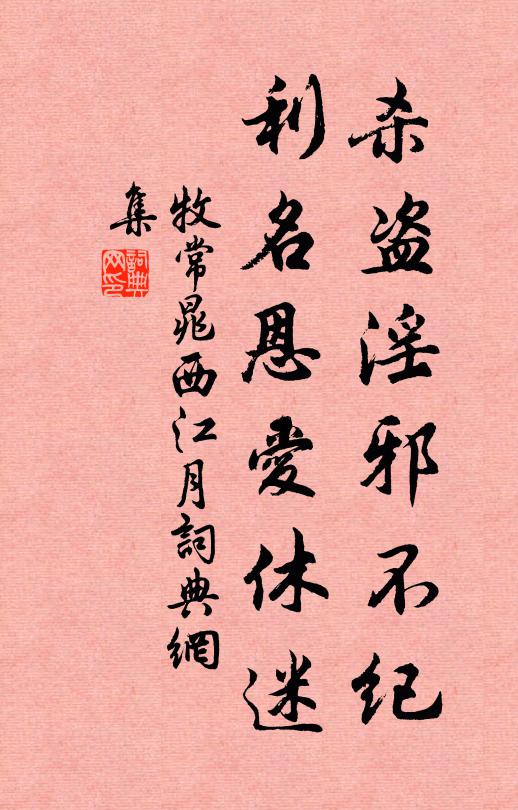 杀盗淫邪不纪
利名恩愛休迷
牧常晁西江月詞典網
集
詞典
网印